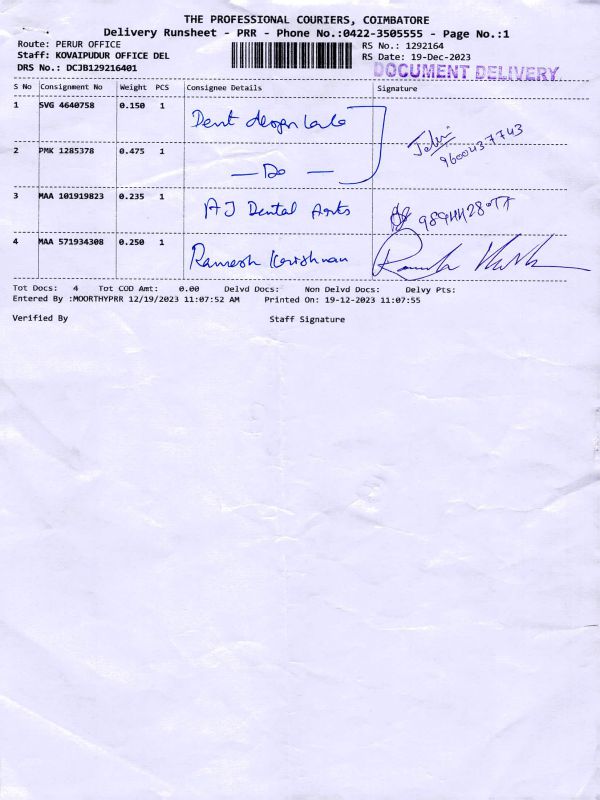 THE PROFESSIONAL COURIERS, COIMBATORE
Delivery Runsheet - PRR - Phone No.:0422-3505555 - Page No.:1
Route: PERUR OFFICE RS No.: 1292164
Staff: KOVAIPUDUR OFFICE DEL RS Date: 19-Dec-2023
DRS No.: DCJB129216401 DOCUMENT DELIVERY
S No Consignment No Weight PCS Consignee Details Signature
1 SVG 4640758 0.150 1 Dent
2 PMK 1285378 0.475 1 — Do — 9600437743
3 MAA 101919823 0.235 1 AJ Dental Arts
4 MAA 571934308 0.250 1 Ramesh Krishnan
Tot Docs: 4 Tot COD Amt: 0.00 Delvd Docs: Non Delvd Docs: Delvy Pts:
Entered By :MOORTHYPRR 12/19/2023 11:07:52 AM Printed On: 19-12-2023 11:07:55
Verified By Staff Signature